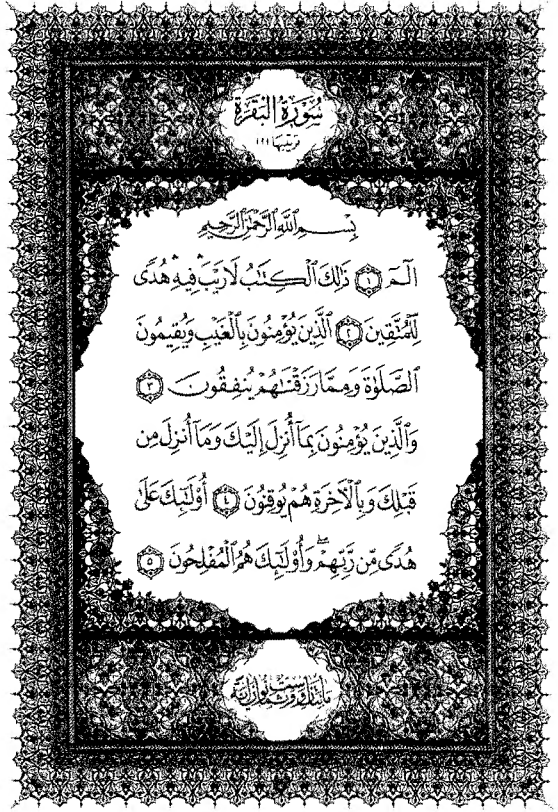 سُورَةُ البَقَرَةِ
بِسْمِ ٱللَّهِ ٱلرَّحْمَٰنِ ٱلرَّحِيمِ
الٓمٓ ۝١ ذَٰلِكَ ٱلْكِتَٰبُ لَا رَيْبَ ۛ فِيهِ ۛ هُدًى
لِّلْمُتَّقِينَ ۝٢ ٱلَّذِينَ يُؤْمِنُونَ بِٱلْغَيْبِ وَيُقِيمُونَ
ٱلصَّلَوٰةَ وَمِمَّا رَزَقْنَٰهُمْ يُنفِقُونَ ۝٣
وَٱلَّذِينَ يُؤْمِنُونَ بِمَآ أُنزِلَ إِلَيْكَ وَمَآ أُنزِلَ مِن
قَبْلِكَ وَبِٱلْءَاخِرَةِ هُمْ يُوقِنُونَ ۝٤ أُو۟لَٰٓئِكَ عَلَىٰ
هُدًى مِّن رَّبِّهِمْ ۖ وَأُو۟لَٰٓئِكَ هُمُ ٱلْمُفْلِحُونَ ۝٥